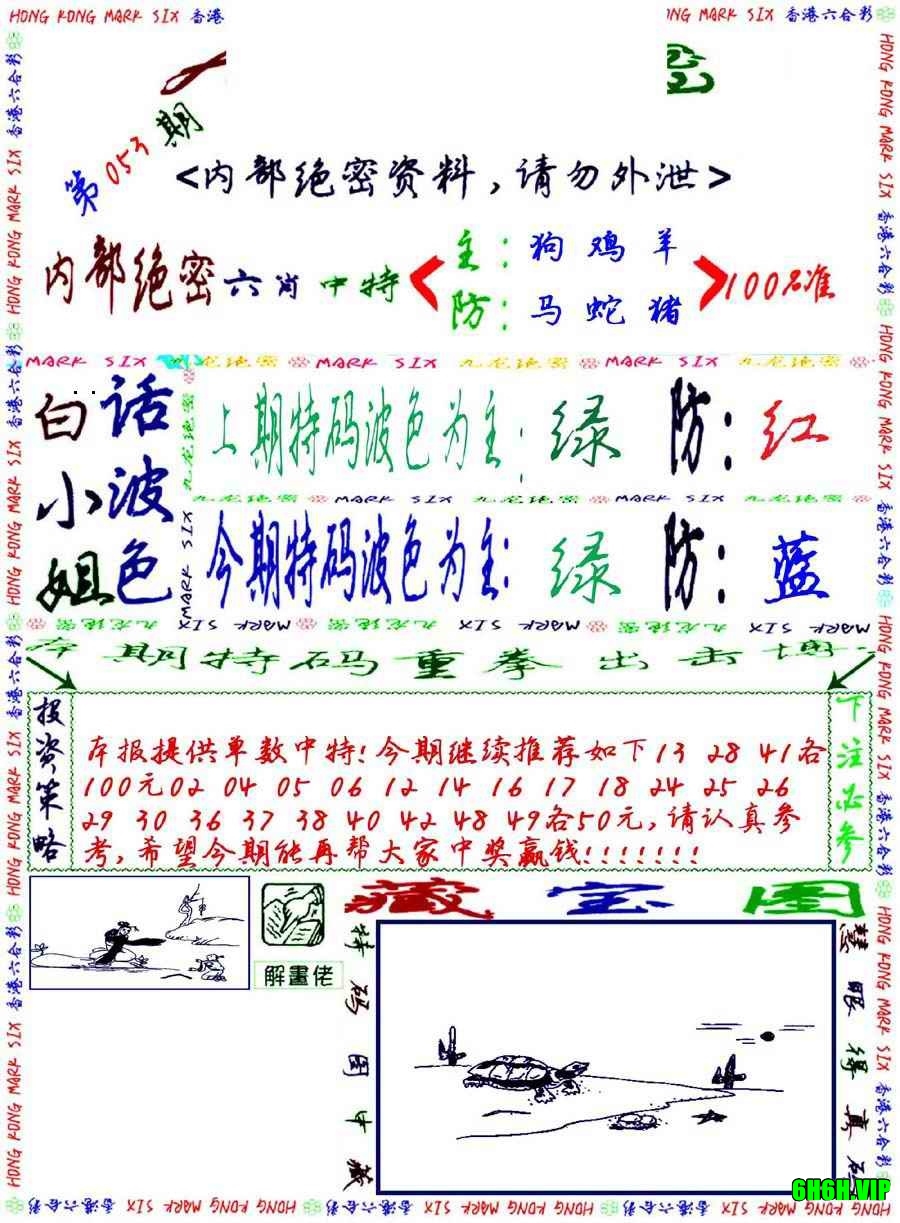 HONG KONG MARK SIX 香港
NG MARK SIX 香港六合彩
第053期
<内部绝密资料,请勿外泄>
内部绝密六肖中特
主:狗鸡羊
防:马蛇猪
100%准
MARK SIX 九龙绝密 MARK SIX 九龙绝密 MARK SIX 九龙绝密
白话
小波
姐色
上期特码波色为主:绿 防:红
九龙绝密 MARK SIX 九龙绝密 MARK SIX 九龙绝密
今期特码波色为主:绿 防:蓝
九龙绝密 MARK SIX 九龙绝密 MARK SIX 九龙绝密 MARK SIX
本期特码重拳出击博
投资策略
本报提供单数中特!今期继续推荐如下13 28 41各
100元02 04 05 06 12 14 16 17 18 24 25 26
29 30 36 37 38 40 42 48 49各50元,请认真参
考,希望今期能再帮大家中奖赢钱!!!!!!!
下注必参
解畫佬
藏宝图
特码图中藏
慧眼得真码
HONG KONG MARK SIX 香港六合彩
6H6H.VIP